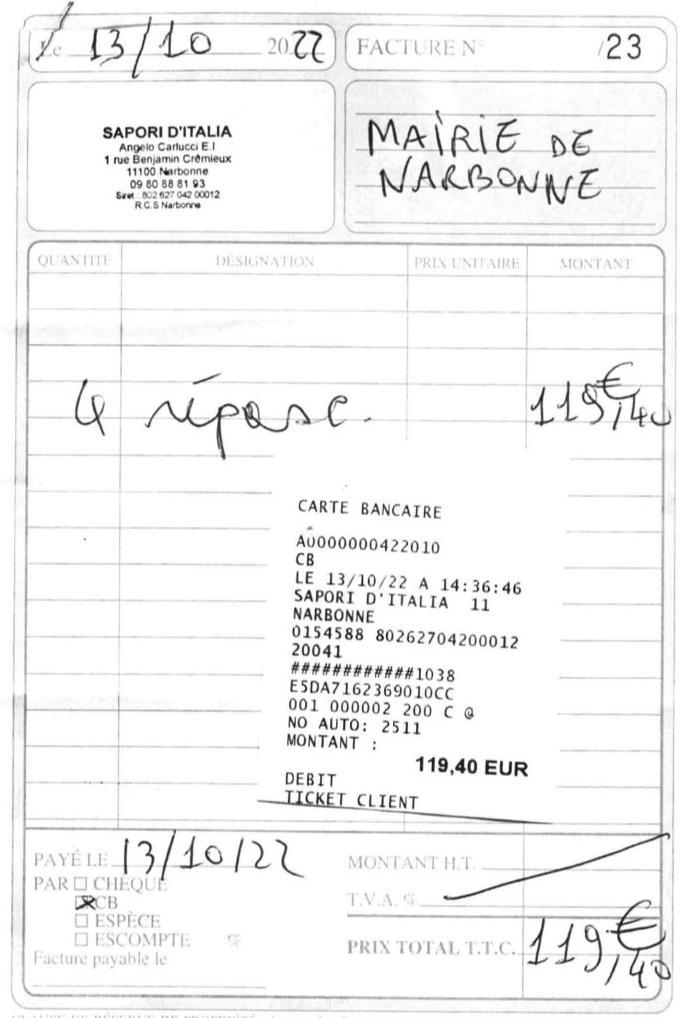 Le 13/10 2022
FACTURE N° /23
SAPORI D'ITALIA
Angelo Carlucci E.I
1 rue Benjamin Crémieux
11100 Narbonne
09 80 88 81 93
Siret : 802 627 042 00012
R.C.S Narbonne
MAIRIE DE
NARBONNE
QUANTITÉ DÉSIGNATION PRIX UNITAIRE MONTANT
4 répase. 119,40 €
CARTE BANCAIRE
A0000000422010
CB
LE 13/10/22 A 14:36:46
SAPORI D'ITALIA 11
NARBONNE
0154588 80262704200012
20041
############1038
E5DA7162369010CC
001 000002 200 C @
NO AUTO: 2511
MONTANT :
119,40 EUR
DEBIT
TICKET CLIENT
PAYÉ LE 13/10/22
PAR ☐ CHÈQUE
☒ CB
☐ ESPÈCE
☐ ESCOMPTE %
Facture payable le
MONTANT H.T.
T.V.A. %
PRIX TOTAL T.T.C. 119,40 €